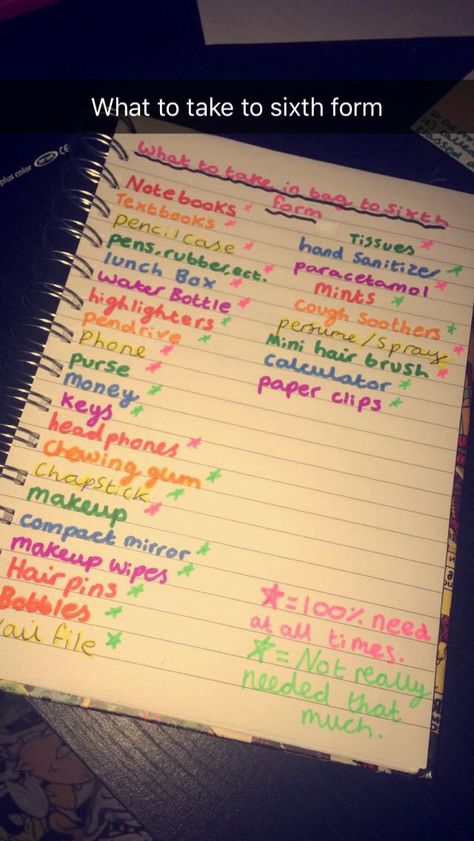 What to take to sixth form
plus color
What to take in bag to sixth
form
Notebooks *
Textbooks *
pencil case *
pens, rubber, ect.
lunch Box *
Water Bottle *
highlighters *
pendrive *
Phone *
purse *
money *
keys *
headphones *
Chewing gum *
Chapstick *
makeup *
compact mirror *
makeup wipes *
Hair pins *
Bobbles *
Nail file *
Tissues *
hand Sanitizer *
paracetamol *
mints *
Cough Soothers *
perfume/Sprays
Mini hair brush *
calculator *
paper clips *
* = 100% need
at all times.
* = Not really
needed that
much.